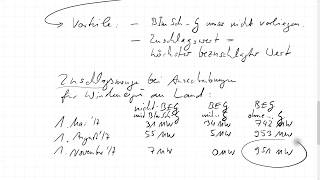 ↳ Vorteile: – BImSch-G muss nicht vorliegen
– Zuschlagswert =
höchster bezuschlagter Wert
Zuschlagsmenge bei Ausschreibungen
für Windenergie an Land:
nicht-BEG BEG BEG
mit BImSchG mit... G ohne... G
1. Mai '17 31 MW 34 MW 742 MW
1. August '17 55 MW 5 MW 953 MW
1. November '17 7 MW 0 MW 951 MW